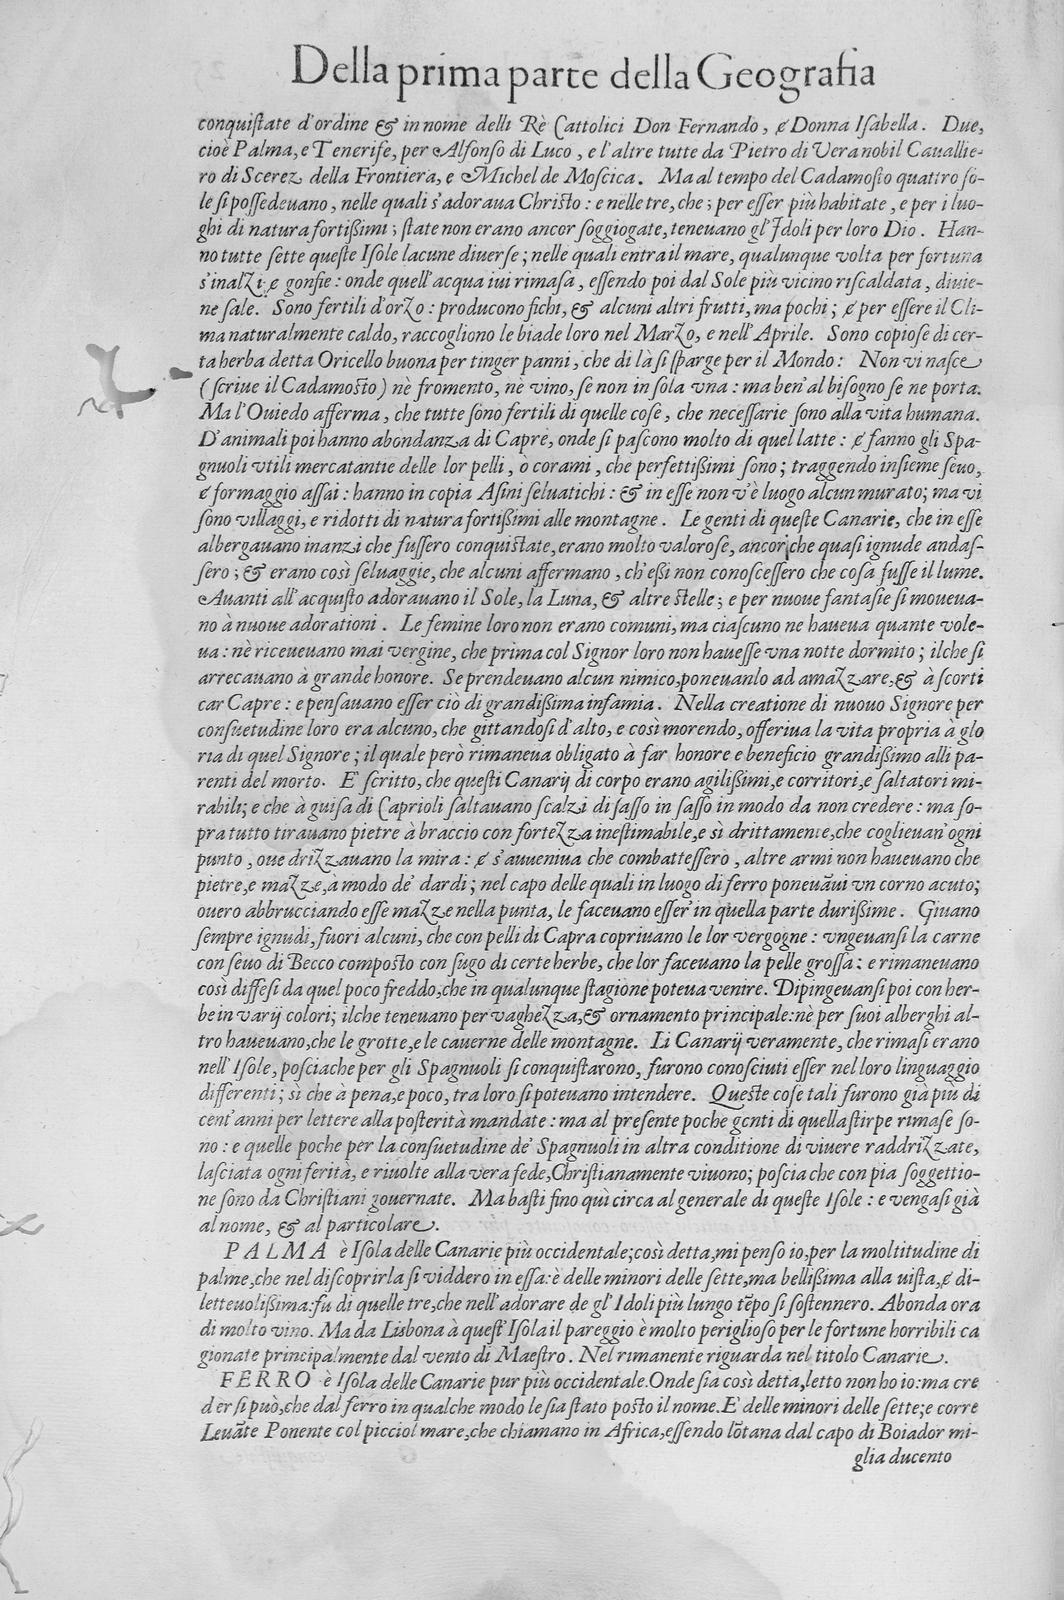 Della prima parte della Geografia
conquiſtate d'ordine & in nome delli Rè Cattolici Don Fernando, & Donna Iſabella. Due,
cioè Palma, e Tenerife, per Alfonſo di Luco, e l'altre tutte da Pietro di Vera nobil Cauallie-
ro di Scerez della Frontiera, e Michel de Moſcica. Ma al tempo del Cadamoſto quattro ſo-
le ſi poſſedeuano, nelle quali s'adoraua Chriſto: e nelle tre, che; per eſſer più habitate, e per i luo-
ghi di natura fortißimi; ſtate non erano ancor ſoggiogate, teneuano gl'Idoli per loro Dio. Han-
no tutte ſette queſte Iſole lacune diuerſe; nelle quali entra il mare, qualunque volta per fortuna
s'inalzi, & gonfie: onde quell'acqua iui rimaſa, eſſendo poi dal Sole più vicino riſcaldata, diuie-
ne ſale. Sono fertili d'orzo: producono fichi, & alcuni altri frutti, ma pochi; & per eſſere il Cli-
ma naturalmente caldo, raccogliono le biade loro nel Marzo, e nell'Aprile. Sono copioſe di cer-
ta herba detta Oricello buona per tinger panni, che di là ſi ſparge per il Mondo: Non vi naſce
(ſcriue il Cadamoſto) nè fromento, nè vino, ſe non in ſola vna: ma ben'al biſogno ſe ne porta.
Ma l'Ouiedo afferma, che tutte ſono fertili di quelle coſe, che neceſſarie ſono alla vita humana.
D'animali poi hanno abondanza di Capre, onde ſi paſcono molto di quel latte: & fanno gli Spa-
gnuoli vtili mercatantie delle lor pelli, o corami, che perfettißimi ſono; traggendo inſieme ſeuo,
& formaggio aſſai: hanno in copia Aſini ſeluatichi: & in eſſe non v'è luogo alcun murato; ma vi
ſono villaggi, e ridotti di natura fortißimi alle montagne. Le genti di queſte Canarie, che in eſſe
albergauano inanzi che fuſſero conquiſtate, erano molto valoroſe, ancor che quaſi ignude andaſ-
ſero; & erano così ſeluaggie, che alcuni affermano, ch'eßi non conoſceſſero che coſa fuſſe il lume.
Auanti all'acquiſto adorauano il Sole, la Luna, & altre ſtelle; e per nuoue fantaſie ſi moueua-
no à nuoue adorationi. Le femine loro non erano comuni, ma ciaſcuno ne haueua quante vole-
ua: nè riceueuano mai vergine, che prima col Signor loro non haueſſe vna notte dormito; ilche ſi
arrecauano à grande honore. Se prendeuano alcun nimico, poneuanlo ad amazzare, & à ſcorti
car Capre: e penſauano eſſer ciò di grandißima infamia. Nella creatione di nuouo Signore per
conſuetudine loro era alcuno, che gittandoſi d'alto, e così morendo, offeriua la vita propria à glo
ria di quel Signore; il quale però rimaneua obligato à far honore e beneficio grandißimo alli pa-
renti del morto. E' ſcritto, che queſti Canarij di corpo erano agilißimi, e corritori, e ſaltatori mi-
rabili; e che à guiſa di Caprioli ſaltauano ſcalzi di ſaſſo in ſaſſo in modo da non credere: ma ſo-
pra tutto tirauano pietre à braccio con fortezza ineſtimabile, e sì drittamente, che coglieuan'ogni
punto, oue drizzauano la mira: & s'auueniua che combatteſſero, altre armi non haueuano che
pietre, e mazze, à modo de' dardi; nel capo delle quali in luogo di ferro poneuāui vn corno acuto;
ouero abbrucciando eſſe mazze nella punta, le faceuano eſſer'in quella parte durißime. Giuano
ſempre ignudi, fuori alcuni, che con pelli di Capra copriuano le lor vergogne: vngeuanſi la carne
con ſeuo di Becco compoſto con ſugo di certe herbe, che lor faceuano la pelle groſſa: e rimaneuano
così diffeſi da quel poco freddo, che in qualunque ſtagione poteua venire. Dipingeuanſi poi con her-
be in varij colori; ilche teneuano per vaghezza, & ornamento principale: nè per ſuoi alberghi al-
tro haueuano, che le grotte, e le cauerne delle montagne. Li Canarij veramente, che rimaſi erano
nell'Iſole, poſciache per gli Spagnuoli ſi conquiſtarono, furono conoſciuti eſſer nel loro linguaggio
differenti; sì che à pena, e poco, tra loro ſi poteuano intendere. Queſte coſe tali furono già più di
cent'anni per lettere alla poſterità mandate: ma al preſente poche genti di quella ſtirpe rimaſe ſo-
no: e quelle poche per la conſuetudine de' Spagnuoli in altra conditione di viuere raddrizzate,
laſciata ogni ferità, e riuolte alla vera fede, Chriſtianamente viuono; poſcia che con pia ſoggettio-
ne ſono da Chriſtiani gouernate. Ma baſti fino quì circa al generale di queſte Iſole: e vengaſi già
al nome, & al particolare.
PALMA è Iſola delle Canarie più occidentale; così detta, mi penſo io, per la moltitudine di
palme, che nel diſcoprirla ſi viddero in eſſa: è delle minori delle ſette, ma bellißima alla uiſta, & di-
letteuolißima: fu di quelle tre, che nell'adorare de gl'Idoli più lungo tēpo ſi ſoſtennero. Abonda ora
di molto vino. Ma da Lisbona à queſt'Iſola il pareggio è molto periglioſo per le fortune horribili ca
gionate principalmente dal vento di Maeſtro. Nel rimanente riguarda nel titolo Canarie.
FERRO è Iſola delle Canarie pur più occidentale. Onde ſia così detta, letto non ho io: ma cre
der ſi può, che dal ferro in qualche modo le ſia ſtato poſto il nome. E' delle minori delle ſette; e corre
Leuāte Ponente col picciol mare, che chiamano in Africa, eſſendo lōtana dal capo di Boiador mi-
glia ducento